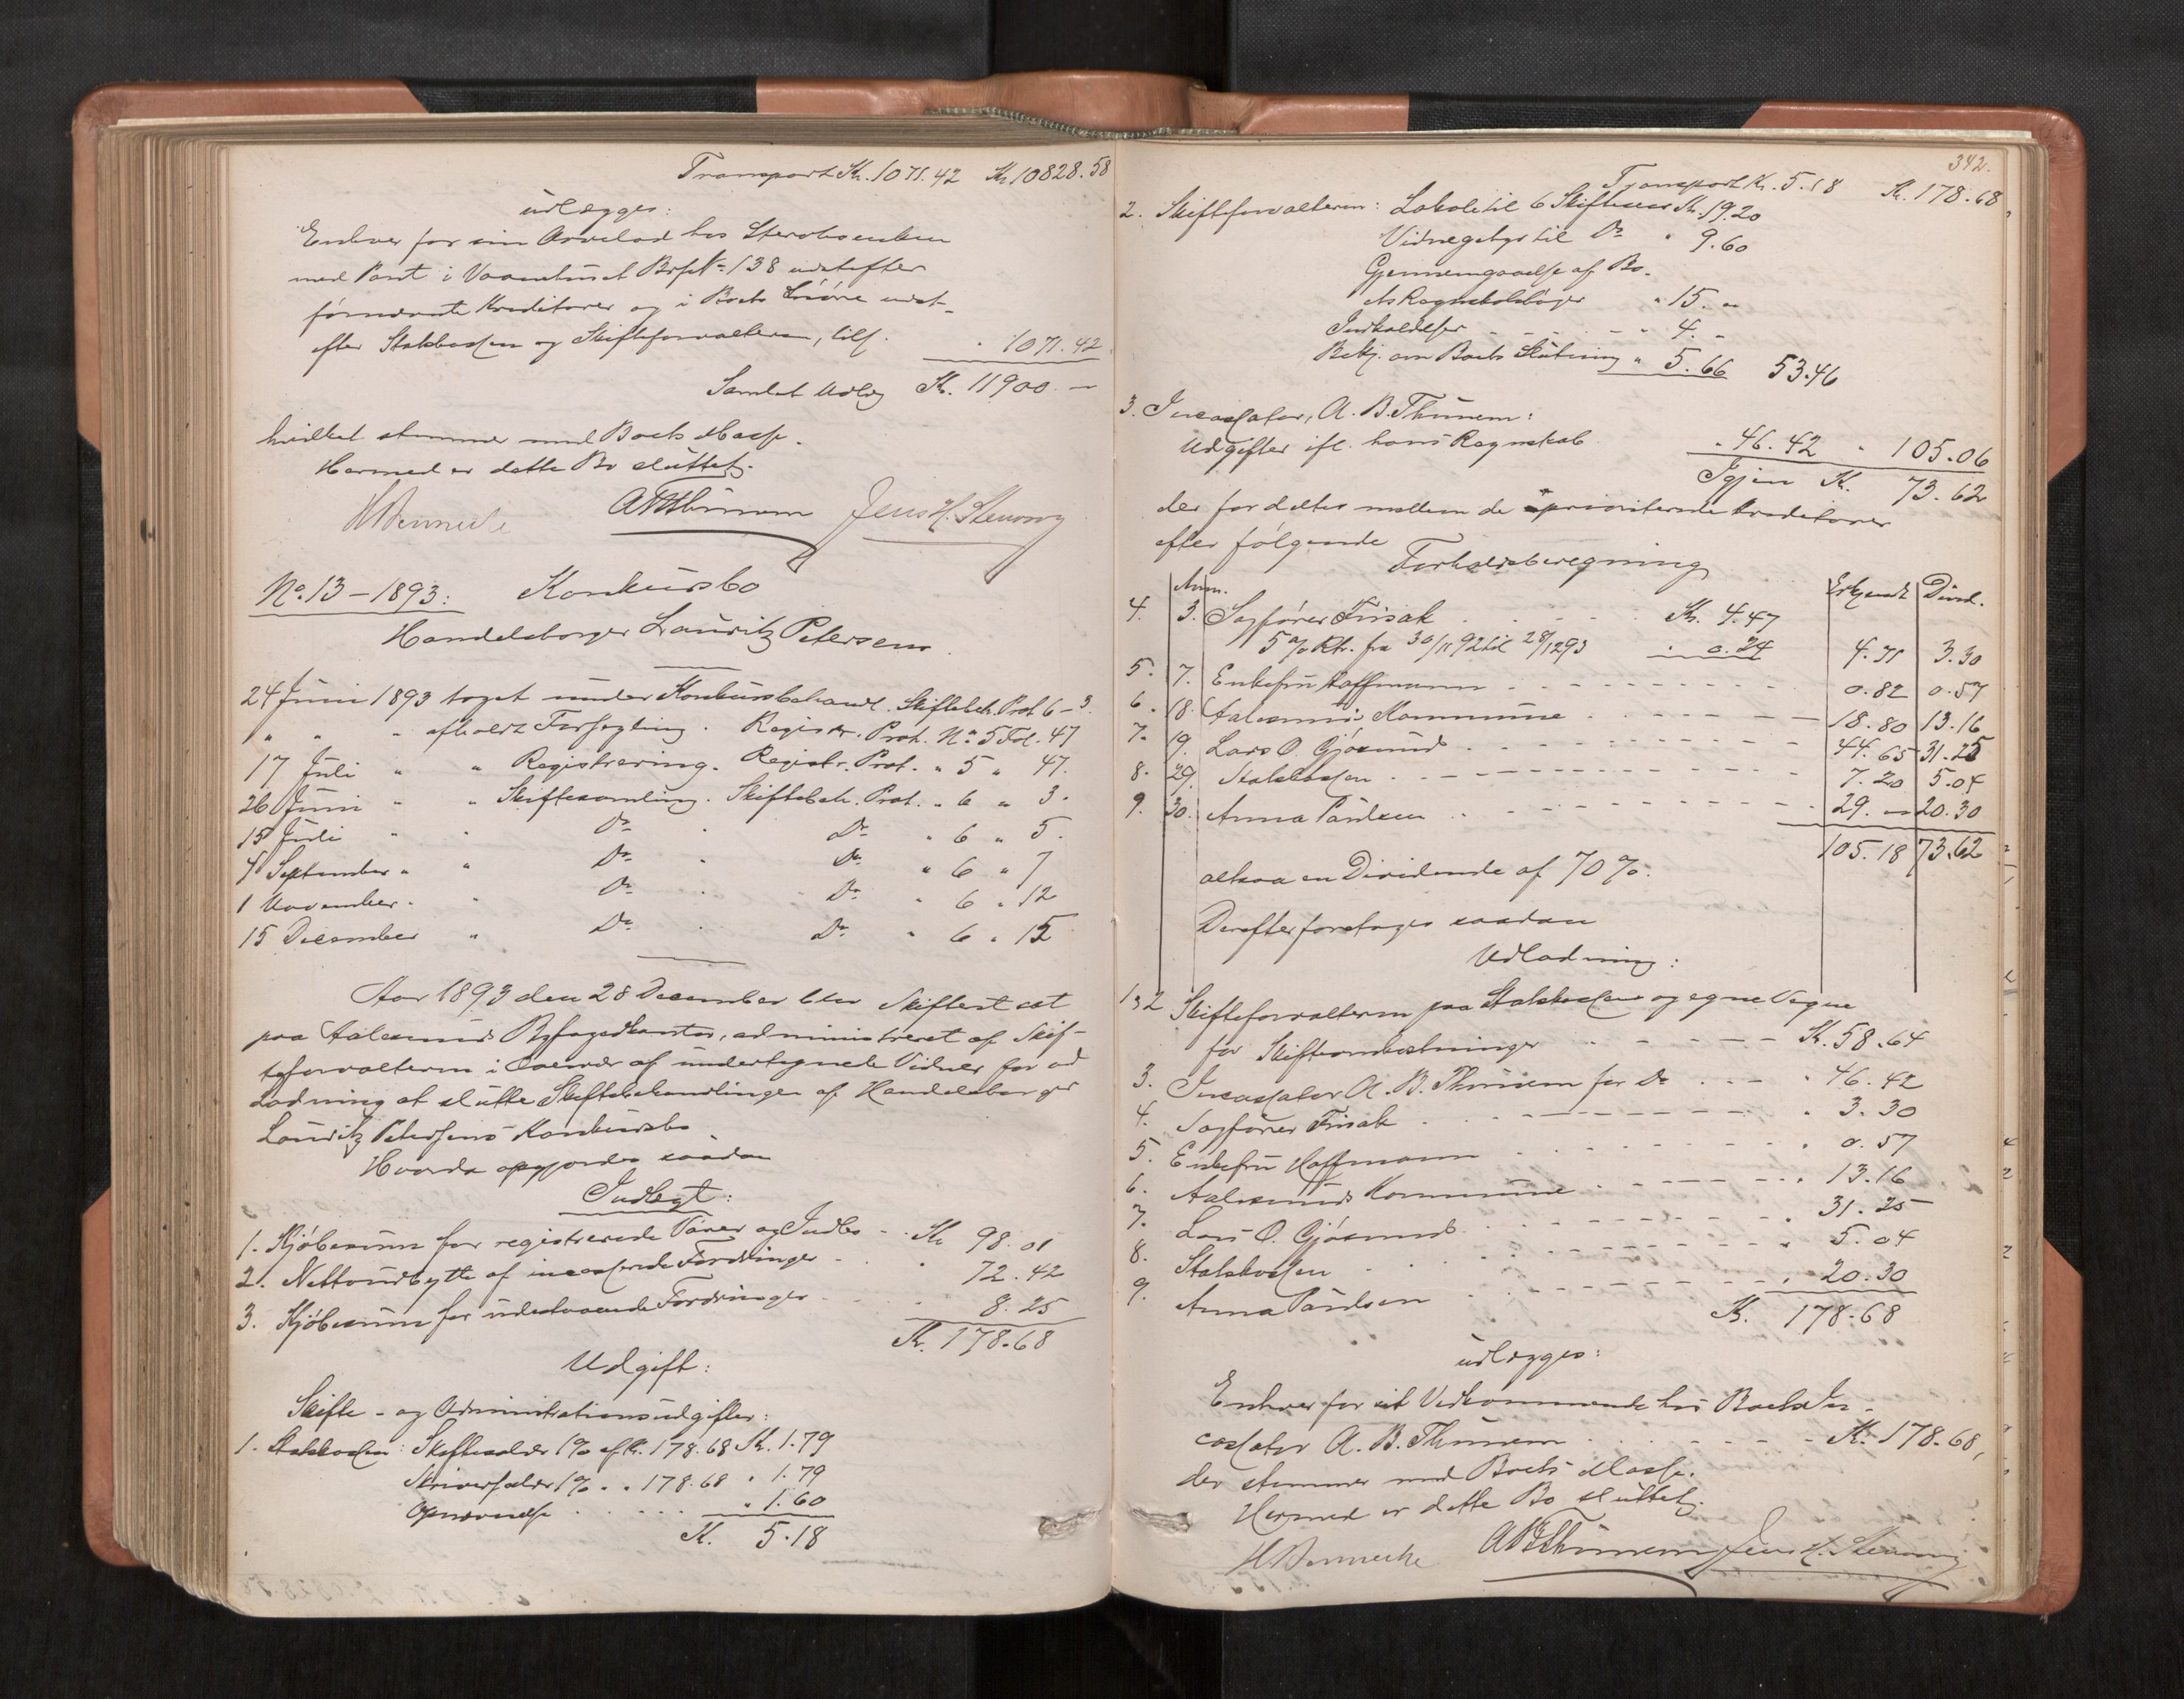 Transport Kr. 1071.42 Kr. 10828.58
udlægges:
Enhver for sin Arvelod hos Stervboenken
med Pant i Vaanehuset Brf. No 138 udstefter
førnævnte Kreditorer og i Boets Løsøre udst-
efter Statskassen og Skifteforvalteren, tils. " 1071.42
Samlet Udlæg Kr. 11900 –
hvilket stemmer med Boets Masse.
Hermed er dette Bo sluttet.
ABThunem Jens H. Stenvog
No. 13 – 1893: Konkursbo
Handelsborger Lauritz Petersens.
24 Juni 1893 taget under Konkursbehandl. Skiftebeh. Prot 6 – 3.
" " " afholdt Forsegling. Registr. Prot. No 5 Fol. 47
17 Juli " " Registrering. Registr. Prot. " 5 " 47.
26 Juni " " Skiftesamling. Skiftebeh. Prot. " 6 " 3.
15 Juli " " Do " Do " 6 " 5.
4 September " " Do " Do " 6 " 7
1 November " " Do " Do " 6 " 12
15 December " Do " Do " 6 " 15
Aar 1893 den 28 December blev Skifteret sat
paa Aalesunds Byfogedkontor, administreret af Skif-
teforvalteren i Overvær af undertegnede Vidner for ved
Lodning at slutte Skiftebehandlingen af Handelsborger
Lauritz Petersens Konkursbo
Hvorda opgjordes saadan
Indtægt:
1. Kjøbesum for registrerede Varer og Indbo - - Kr. 98.01
2. Nettoudbytte af incasserede Fordringer - . " 72.42
3. Kjøbesum for udestaaende Fordringer - - " 8.25
Kr. 178.68
Udgift:
Skifte- og Administrationsudgifter:
1. Statskassen: Skiftesalær 1% af Kr. 178.68 Kr. 1.79
Skriversalær 1% " " 178.68 " 1.79
Opnævnelse . . . . . " 1.60
Kr. 5.18
342.
Transport Kr. 5.18 Kr. 178.68
2. Skifteforvalteren: Lokale til 6 Skiftesaml. Kr. 19.20
Vidnegebyr til Do " 9.60
Gjennemgaaelse af Bo-
ets Regnskabsbøger " 15. "
Indkaldelser - - - - " 4. -
Bekj. om Boets Slutning " 5.66 53.46
3. Incassator, A. B. Thunem:
Udgifter ifl. hans Regnskab " 46.42 " 105.06
Igjen Kr. 73.62
der fordeles mellem de uprioriterede Kreditorer
efter følgende
Forholdsberegning
Anm. Erkjendt Divid.
4. 3. Sagfører Frisak . . . . . Kr. 4.47
5% Rtr. fra 30/11 92 til 28/12 93 " 0.24 4.71 3.30
5. 7. Enkefru Hoffmann - - - - 0.82 0.57
6. 18. Aalesunds Kommune - - - - 18.80 13.16
7. 19. Lars O. Gjøsund - - - - 44.65 31.25
8. 29. Statskassen - - - - 7.20 5.04
9. 30. Anna Paulsen - - - - 29. " 20.30
105.18 73.62
altsaa en Dividende af 70%.
Derefter foretages saadan
Udlodning:
1 & 2 Skifteforvalteren paa Statskassens og egne Vegne
for Skifteomkostninger - - - - Kr. 58.64
3. Incassator A. B. Thunem for Do - - - " 46.42
4. Sagfører Frisak - - - - " 3.30
5. Enkefru Hoffmann - - - - " 0.57
6. Aalesunds Kommune - - - - " 13.16
7. Lars O. Gjøsund - - - - " 31.25
8. Statskassen - - - - " 5.04
9. Anna Paulsen - - - - " 20.30
Kr. 178.68
udlægges:
Enhver for sit Vedkommende hos Boets In-
cassator A. B. Thunem - - - - Kr. 178.68,
der stemmer med Boets Masse.
Hermed er dette Bo sluttet.
ABThunem Jens H. Stenvog